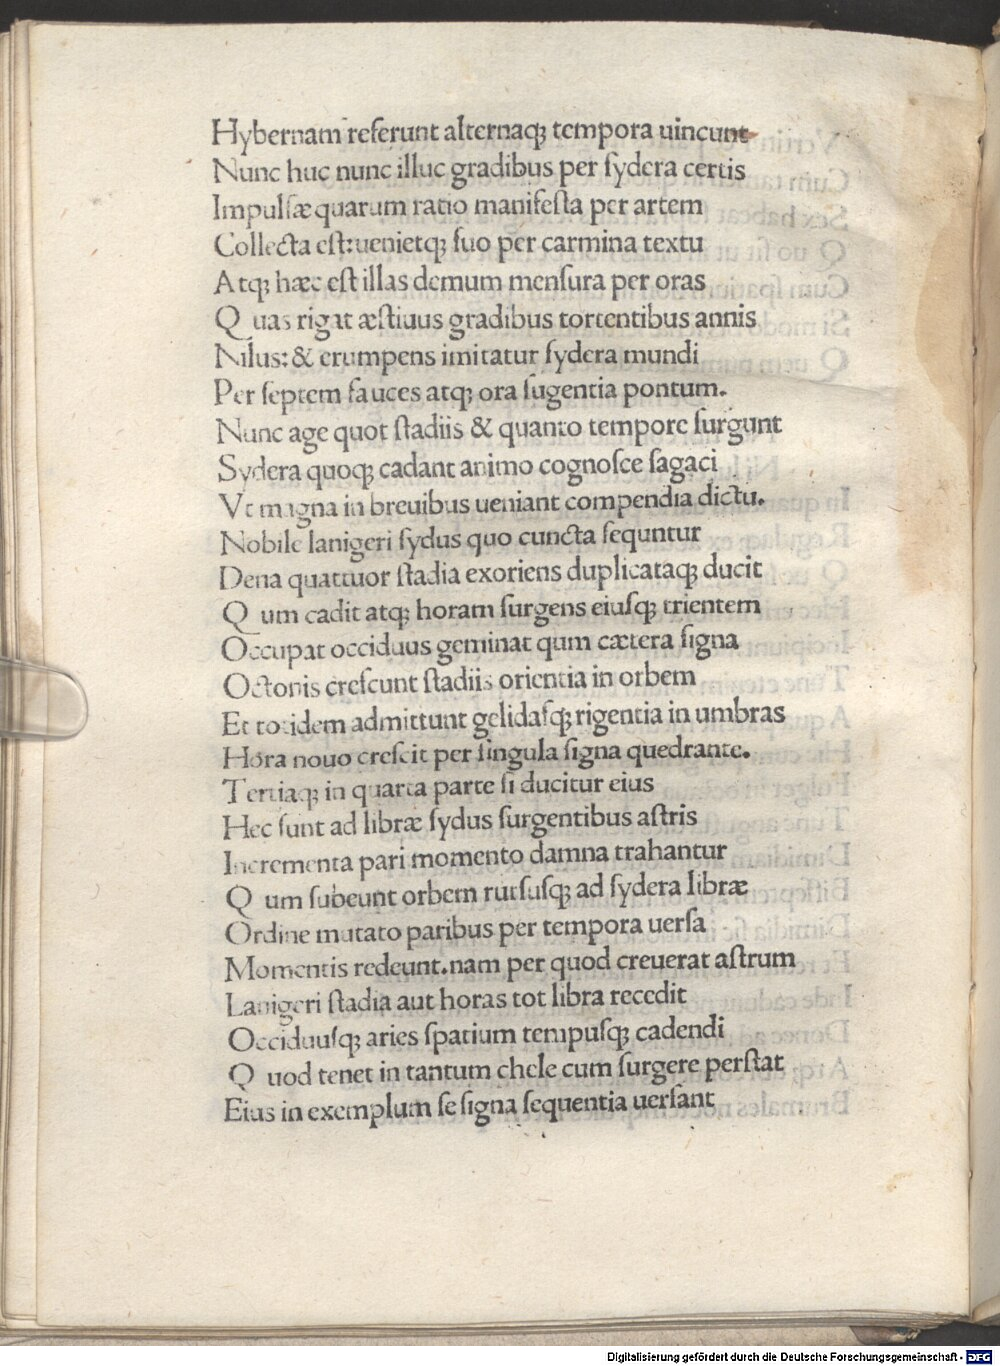 Hybernam referunt alternaqꝫ tempora uincunt
Nunc huc nunc illuc gradibus per ſydera certis
Impulſæ quarum ratio manifeſta per artem
Collecta eſt:uenietqꝫ ſuo per carmina textu
Atqꝫ hæc eſt illas demum menſura per oras
Q uas rigat æſtiuus gradibus torrentibus annis
Nilus:& erumpens imitatur ſydera mundi
Per ſeptem fauces atqꝫ ora fugentia pontum.
Nunc age quot ſtadiis & quanto tempore ſurgunt
Sydera quoqꝫ cadant animo cognoſce ſagaci
Vt magna in breuibus ueniant compendia dictu.
Nobile lanigeri ſydus quo cuncta ſequntur
Dena quattuor ſtadia exoriens duplicataqꝫ ducit
Q um cadit atqꝫ horam ſurgens eiuſqꝫ trientem
Occupat occiduus geminat qum cætera ſigna
Octonis creſcunt ſtadiis orientia in orbem
Et totidem admittunt gelidaſqꝫ rigentia in umbras
Hora nouo creſcit per ſingula ſigna quedrante.
Tertiaqꝫ in quarta parte ſi ducitur eius
Hec ſunt ad libræ ſydus ſurgentibus aſtris
Incrementa pari momento damna trahantur
Q um ſubeunt orbem rutſuſqꝫ ad ſydera libræ
Ordine mutato paribus per tempora uerſa
Momentis redeunt.nam per quod creuerat aſtrum
Lanigeri ſtadia aut horas tot libra recedit
Occiduuſqꝫ aries ſpatium tempuſqꝫ cadendi
Q uod tenet in tantum chele cum ſurgere perſtat
Eius in exemplum ſe ſigna ſequentia uerſant
Digitalisierung gefördert durch die Deutsche Forschungsgemeinschaft - DFG